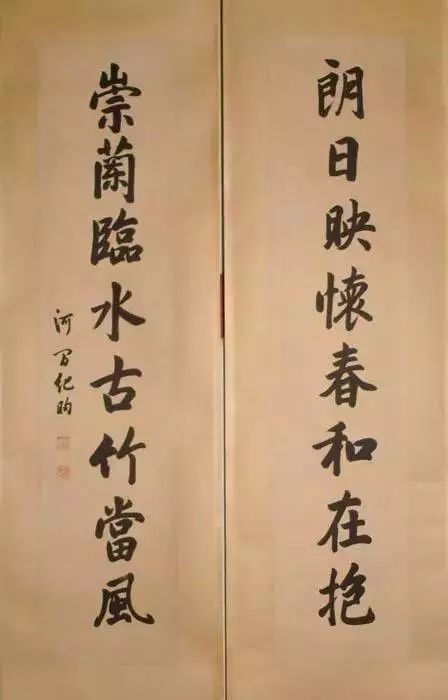 朗日映懷春和在抱
崇蘭臨水古竹當風
河間紀昀